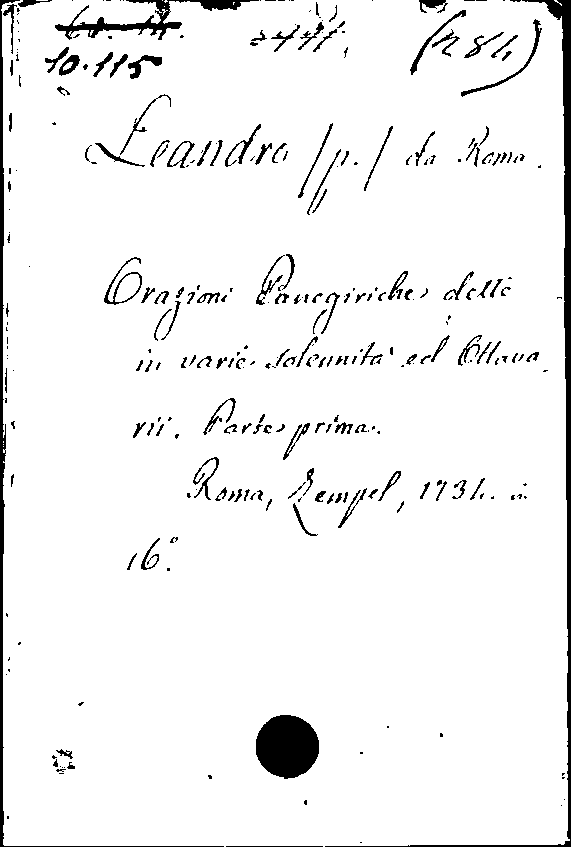 10.115
Leandro /p./ da Roma.
Orazioni Panegiriche dette
in varie solennità ed Ottava
rii. Parte prima.
Roma, Zempel, 1734. in
16°.